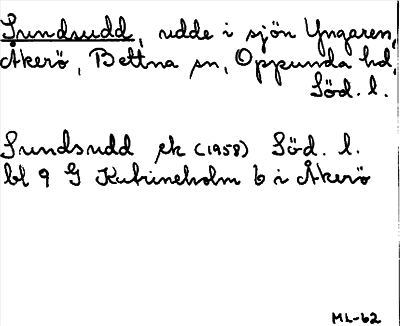 Sundsudd, udde i sjön Yngaren,
Åkerö, Bettna sn, Oppunda hd,
Söd. l.
Sundsudd ek (1958) Söd. l.
bl 9 G Katrineholm 6 i Åkerö
ML-62